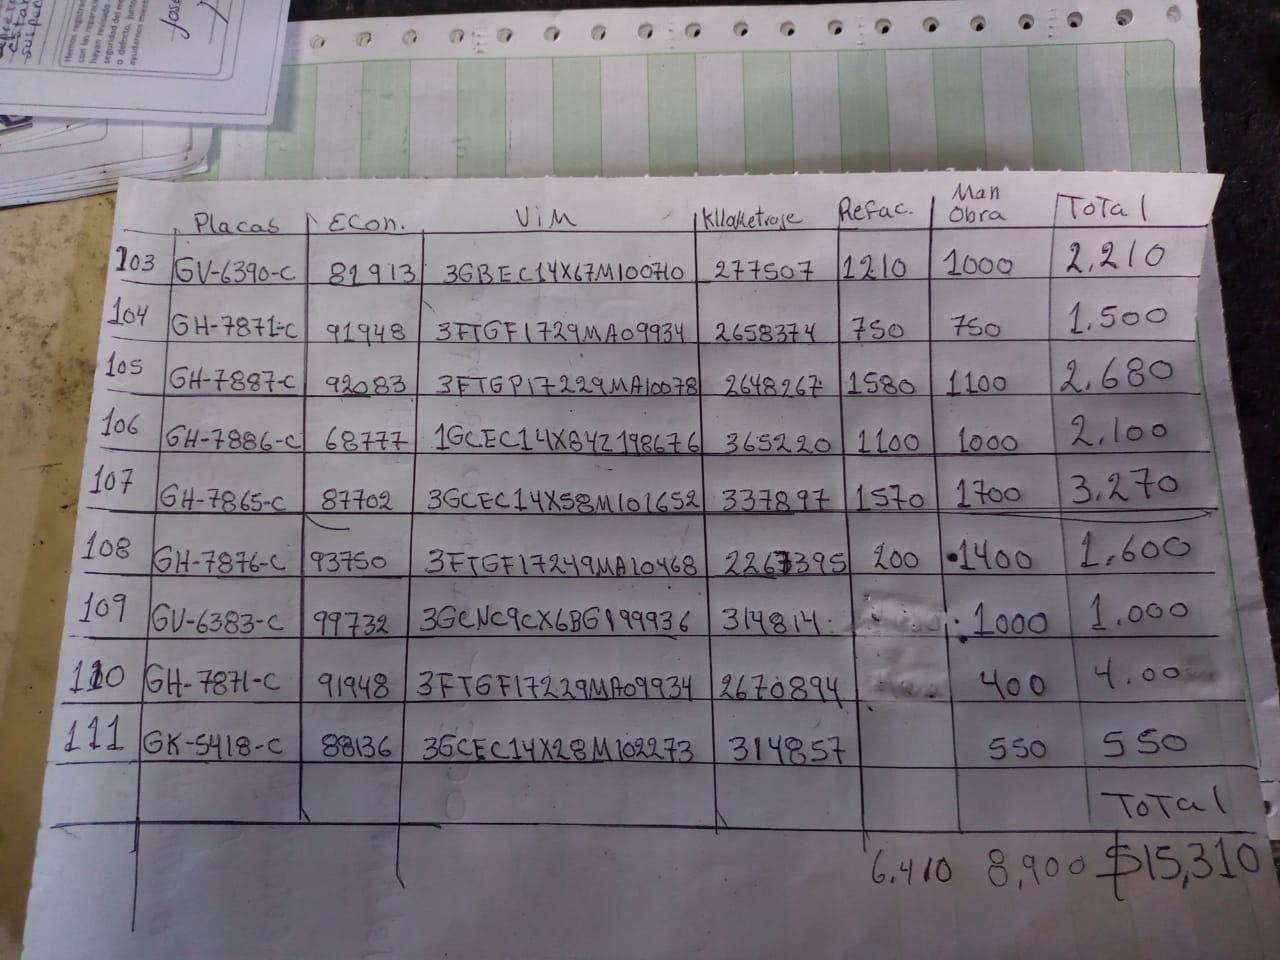 Hemos registrado
con las reparacio
hayan revisado
seguridad del me
o defecto, junto
ayudarnos
Jose
Placas Econ. ViM Kilometraje Refac. Man Obra ToTal
103 GV-6390-C 81913 3GBEC14X67M100710 277507 1210 1000 2,210
104 GH-7871-C 91948 3FTGF1729MA09934 2658374 750 750 1.500
105 GH-7887-C 92083 3FTGP17229MA10078 2648267 1580 1100 2,680
106 GH-7886-C 68777 1GCEC14X84Z198676 365220 1100 1000 2,100
107 GH-7865-C 87702 3GCEC14X58M101652 337897 1570 1700 3,270
108 GH-7876-C 93750 3FTGF17249MA10468 2267395 200 1400 1,600
109 GV-6383-C 99732 3GCNC9CX6BG199936 314814 1000 1.000
110 GH-7871-C 91948 3FTGF17229MA09934 2670894 400 4.00
111 GK-5418-C 88136 3GCEC14X28M102273 314857 550 550
ToTal
6.410 8,900 $15,310